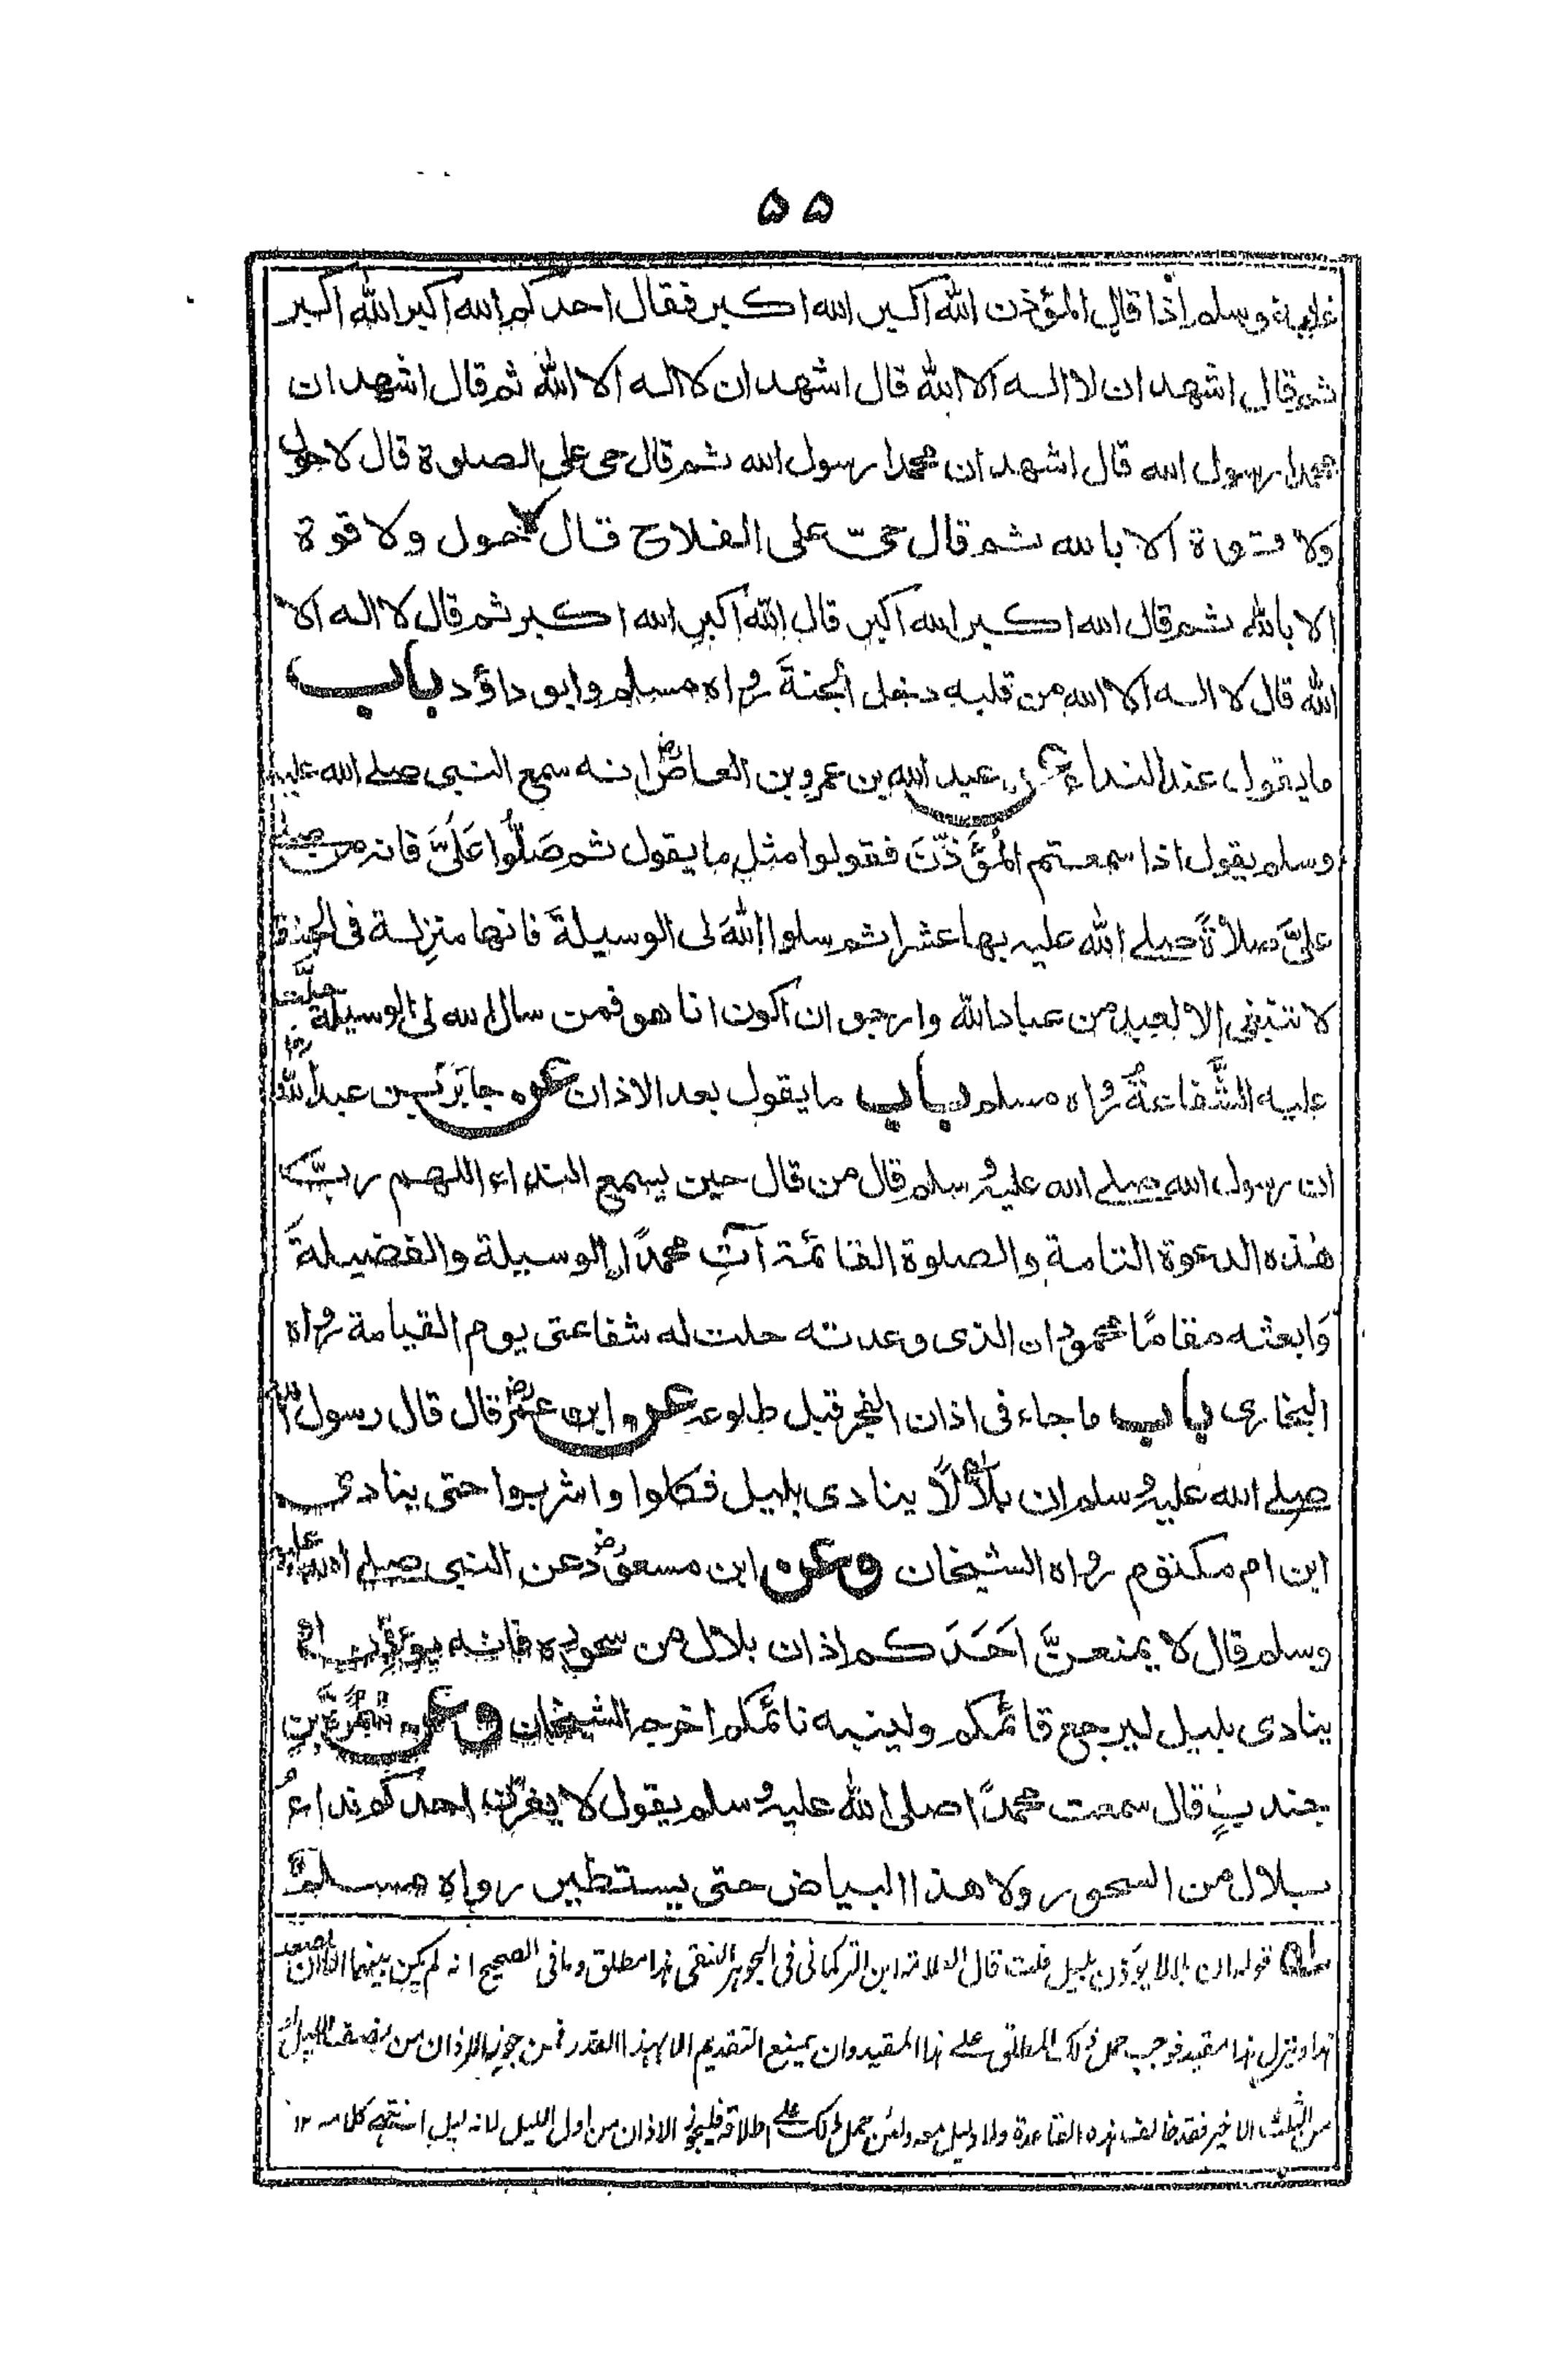 ۵۵
عليه وسلم اذا قال المؤذن الله اكبر الله اكبر فقال احدكم الله اكبر الله اكبر
ثم قال اشهد ان لا اله الا الله قال اشهد ان لا اله الا الله ثم قال اشهد ان
محمدا رسول الله قال اشهد ان محمدا رسول الله ثم قال حي على الصلوة قال لا حول
ولا قوة الا بالله ثم قال حيّ على الفلاح قال لا حول ولا قوة
الا بالله ثم قال الله اكبر الله اكبر قال الله اكبر الله اكبر ثم قال لا اله الا
الله قال لا اله الا الله من قلبه دخل الجنةَ رواه مسلم وابو داؤد باب
ما يقول عند النداء عن عبد الله بن عمرو بن العاصؓ انه سمع النبي صلے الله عليه
وسلم يقول اذا سمعتم المُؤَذّنَ فقولوا مثل ما يقول ثم صَلُّوا عَلَىَّ فانه من صلے
علىَّ صلاةً صلے الله عليه بها عشرا ثم سلوا اللهَ لى الوسيلةَ فانها منزلة فى الجنة
لا تنبغى الا لعبد من عباد الله وارجو ان اكون انا هو فمن سال الله لى الوسيلة حلّت
عليه الشَّفاعةُ رواه مسلم باب ما يقول بعد الاذان عن جابر بن عبد اللهؓ
ان رسول الله صلے الله عليه وسلم قال من قال حين يسمع النداء اللهم ربّ
هٰذه الدعوة التامة والصلوة القائمة آتِ محمدًا الوسيلة والفضيلةَ
وَابعثه مقامًا محمودان الذى وعدته حلت له شفاعتى يوم القيامة رواه
البخارى باب ما جاء فى اذان الفجر قبل طلوعه عن ابن عمرؓ قال قال رسول الله
صلے الله عليه وسلم ان بلالًا ينادى بليل فكلوا واشربوا حتى ينادى
ابن ام مكتوم رواه الشيخان وعن ابن مسعودؓ عن النبى صلے الله عليه
وسلم قال لا يمنعنَّ اَحَدَكم اذان بلال من سحوره فانه يوذن او
ينادى بليل ليرجع قائمكم ولينبه نائمكم اخرجه الشيخان وعن سَمُرَةَ بن
جندبٍ قال سمعت محمدًا صلى الله عليه وسلم يقول لا يغرّن احدكم نداءُ
بلال من السحور ولا هذا البياض حتى يستطير رواه مسلمٌ
قوله ان بلالا يؤذن بليل قلت قال العلامة ابن التركمانى فى الجوهر النقى هذا مطلق وما فى الصحيح انه لم يكن بينهما الا ان يصعد
هذا وينزل هذا مقيد فوجب حمل ذلك المطلق على هذا المقيد وان يمنع التقديم الا بهذا القدر فمن جوز الاذان من نصف الليل او
من الثلث الاخير فقد خالف هذه القاعدة ولا دليل معه ولئن حمل ذلك على اطلاقه فليجوز الاذان من اول الليل لانه ليل انتهى كلامه ۱۲